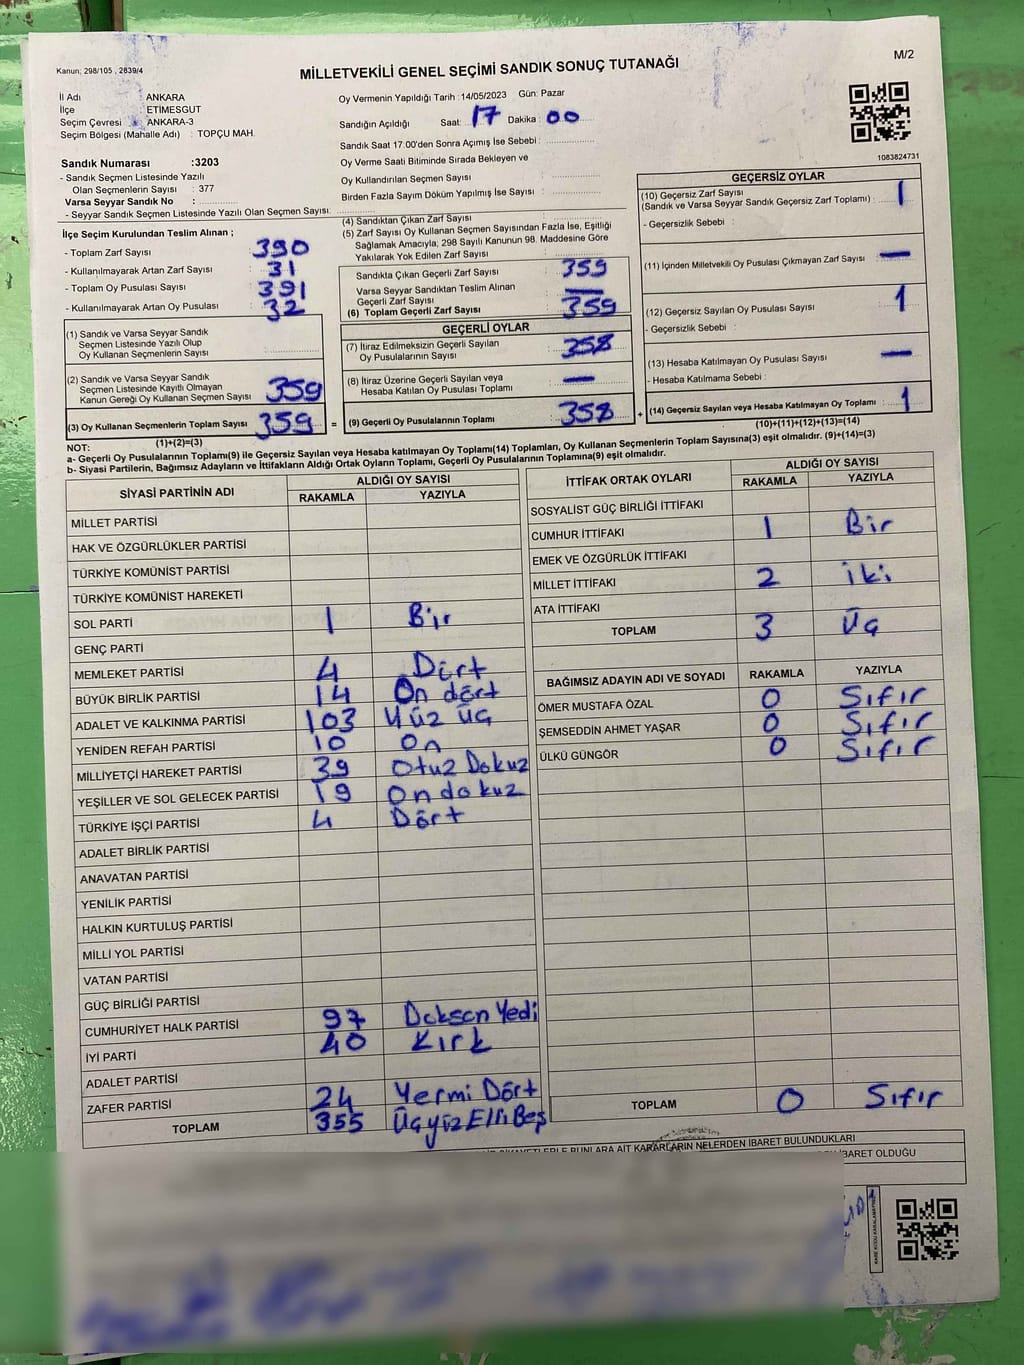 Kanun; 298/105 , 2839/4
MİLLETVEKİLİ GENEL SEÇİMİ SANDIK SONUÇ TUTANAĞI
M/2
İl Adı : ANKARA
İlçe : ETİMESGUT
Seçim Çevresi : ANKARA-3
Seçim Bölgesi (Mahalle Adı) : TOPÇU MAH.
Sandık Numarası :3203
- Sandık Seçmen Listesinde Yazılı
Olan Seçmenlerin Sayısı : 377
Varsa Seyyar Sandık No :
- Seyyar Sandık Seçmen Listesinde Yazılı Olan Seçmen Sayısı:
Oy Vermenin Yapıldığı Tarih :14/05/2023 Gün: Pazar
Sandığın Açıldığı Saat: 17 Dakika : 00
Sandık Saat 17:00'den Sonra Açımış İse Sebebi :
Oy Verme Saati Bitiminde Sırada Bekleyen ve
Oy Kullandırılan Seçmen Sayısı :
Birden Fazla Sayım Döküm Yapılmış İse Sayısı :
1083824731
İlçe Seçim Kurulundan Teslim Alınan ;
- Toplam Zarf Sayısı : 390
- Kullanılmayarak Artan Zarf Sayısı : 31
- Toplam Oy Pusulası Sayısı : 391
- Kullanılmayarak Artan Oy Pusulası : 32
(1) Sandık ve Varsa Seyyar Sandık
Seçmen Listesinde Yazılı Olup
Oy Kullanan Seçmenlerin Sayısı :
(2) Sandık ve Varsa Seyyar Sandık
Seçmen Listesinde Kayıtlı Olmayan
Kanun Gereği Oy Kullanan Seçmen Sayısı : 359
(3) Oy Kullanan Seçmenlerin Toplam Sayısı : 359 =
(1)+(2)=(3)
(4) Sandıktan Çıkan Zarf Sayısı :
(5) Zarf Sayısı Oy Kullanan Seçmen Sayısından Fazla İse, Eşitliği
Sağlamak Amacıyla, 298 Sayılı Kanunun 98. Maddesine Göre
Yakılarak Yok Edilen Zarf Sayısı :
Sandıkta Çıkan Geçerli Zarf Sayısı : 359
Varsa Seyyar Sandıktan Teslim Alınan
Geçerli Zarf Sayısı : —
(6) Toplam Geçerli Zarf Sayısı : 359
GEÇERLİ OYLAR
(7) İtiraz Edilmeksizin Geçerli Sayılan
Oy Pusulalarının Sayısı : 358
(8) İtiraz Üzerine Geçerli Sayılan veya
Hesaba Katılan Oy Pusulası Toplamı : —
(9) Geçerli Oy Pusulalarının Toplamı : 358 +
GEÇERSİZ OYLAR
(10) Geçersiz Zarf Sayısı
(Sandık ve Varsa Seyyar Sandık Geçersiz Zarf Toplamı) : 1
- Geçersizlik Sebebi :
(11) İçinden Milletvekili Oy Pusulası Çıkmayan Zarf Sayısı : —
(12) Geçersiz Sayılan Oy Pusulası Sayısı : 1
- Geçersizlik Sebebi :
(13) Hesaba Katılmayan Oy Pusulası Sayısı : —
- Hesaba Katılmama Sebebi :
(14) Geçersiz Sayılan veya Hesaba Katılmayan Oy Toplamı : 1
(10)+(11)+(12)+(13)=(14)
NOT:
a- Geçerli Oy Pusulalarının Toplamı(9) ile Geçersiz Sayılan veya Hesaba katılmayan Oy Toplamı(14) Toplamları, Oy Kullanan Seçmenlerin Toplam Sayısına(3) eşit olmalıdır. (9)+(14)=(3)
b- Siyasi Partilerin, Bağımsız Adayların ve İttifakların Aldığı Ortak Oyların Toplamı, Geçerli Oy Pusulalarının Toplamına(9) eşit olmalıdır.
SİYASİ PARTİNİN ADI
ALDIĞI OY SAYISI
RAKAMLA YAZIYLA
MİLLET PARTİSİ
HAK VE ÖZGÜRLÜKLER PARTİSİ
TÜRKİYE KOMÜNİST PARTİSİ
TÜRKİYE KOMÜNİST HAREKETİ
SOL PARTİ 1 Bir
GENÇ PARTİ
MEMLEKET PARTİSİ 4 Dört
BÜYÜK BİRLİK PARTİSİ 14 On dört
ADALET VE KALKINMA PARTİSİ 103 Yüz üç
YENİDEN REFAH PARTİSİ 10 On
MİLLİYETÇİ HAREKET PARTİSİ 39 Otuz Dokuz
YEŞİLLER VE SOL GELECEK PARTİSİ 19 On dokuz
TÜRKİYE İŞÇİ PARTİSİ 4 Dört
ADALET BİRLİK PARTİSİ
ANAVATAN PARTİSİ
YENİLİK PARTİSİ
HALKIN KURTULUŞ PARTİSİ
MİLLİ YOL PARTİSİ
VATAN PARTİSİ
GÜÇ BİRLİĞİ PARTİSİ
CUMHURİYET HALK PARTİSİ 97 Doksan Yedi
İYİ PARTİ 40 Kırk
ADALET PARTİSİ
ZAFER PARTİSİ 24 Yermi Dört
TOPLAM 355 Üçyüz Elli Beş
İTTİFAK ORTAK OYLARI
ALDIĞI OY SAYISI
RAKAMLA YAZIYLA
SOSYALİST GÜÇ BİRLİĞİ İTTİFAKI
CUMHUR İTTİFAKI 1 Bir
EMEK VE ÖZGÜRLÜK İTTİFAKI
MİLLET İTTİFAKI 2 iki
ATA İTTİFAKI
TOPLAM 3 Üç
BAĞIMSIZ ADAYIN ADI VE SOYADI RAKAMLA YAZIYLA
ÖMER MUSTAFA ÖZAL 0 Sıfır
ŞEMSEDDİN AHMET YAŞAR 0 Sıfır
ÜLKÜ GÜNGÖR 0 Sıfır
TOPLAM 0 Sıfır
BUNLARA AİT KARARLARIN NELERDEN İBARET BULUNDUKLARI
İBARET OLDUĞU